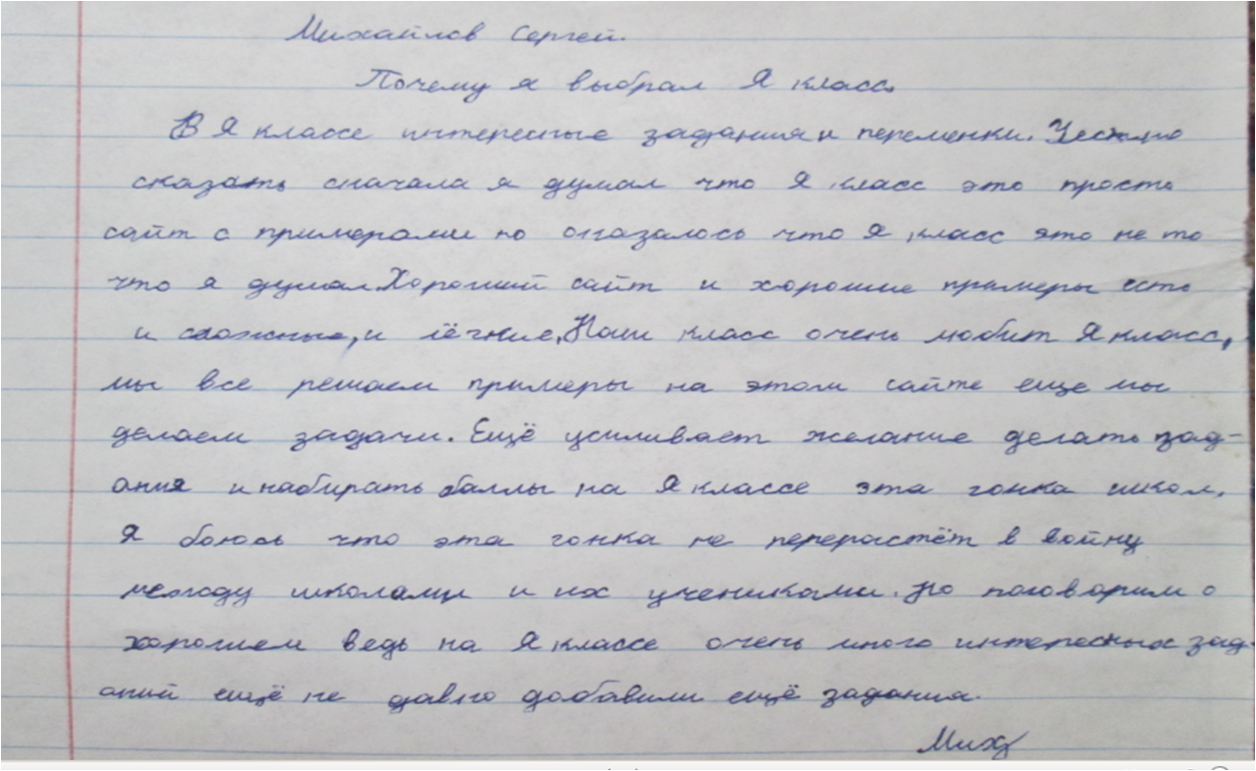 Михайлов Сергей.
Почему я выбрал Я класс.
В Я классе интересные задания и переменки. Честно
сказать сначала я думал что Я класс это просто
сайт с примерами но оказалось что Я класс это не то
что я думал. Хороший сайт и хорошие примеры есть
и сложные, и лёгкие. Наш класс очень любит Я класс,
мы все решаем примеры на этом сайте еще мы
делаем задачи. Ещё усиливает желание делать зад-
ания и набирать баллы на Я классе эта гонка школ.
Я боюсь что эта гонка не перерастёт в войну
между школами и их учениками. Но поговорим о
хорошем ведь на Я классе очень много интересных зад-
аний ещё не давно добавили ещё задания.
Мих